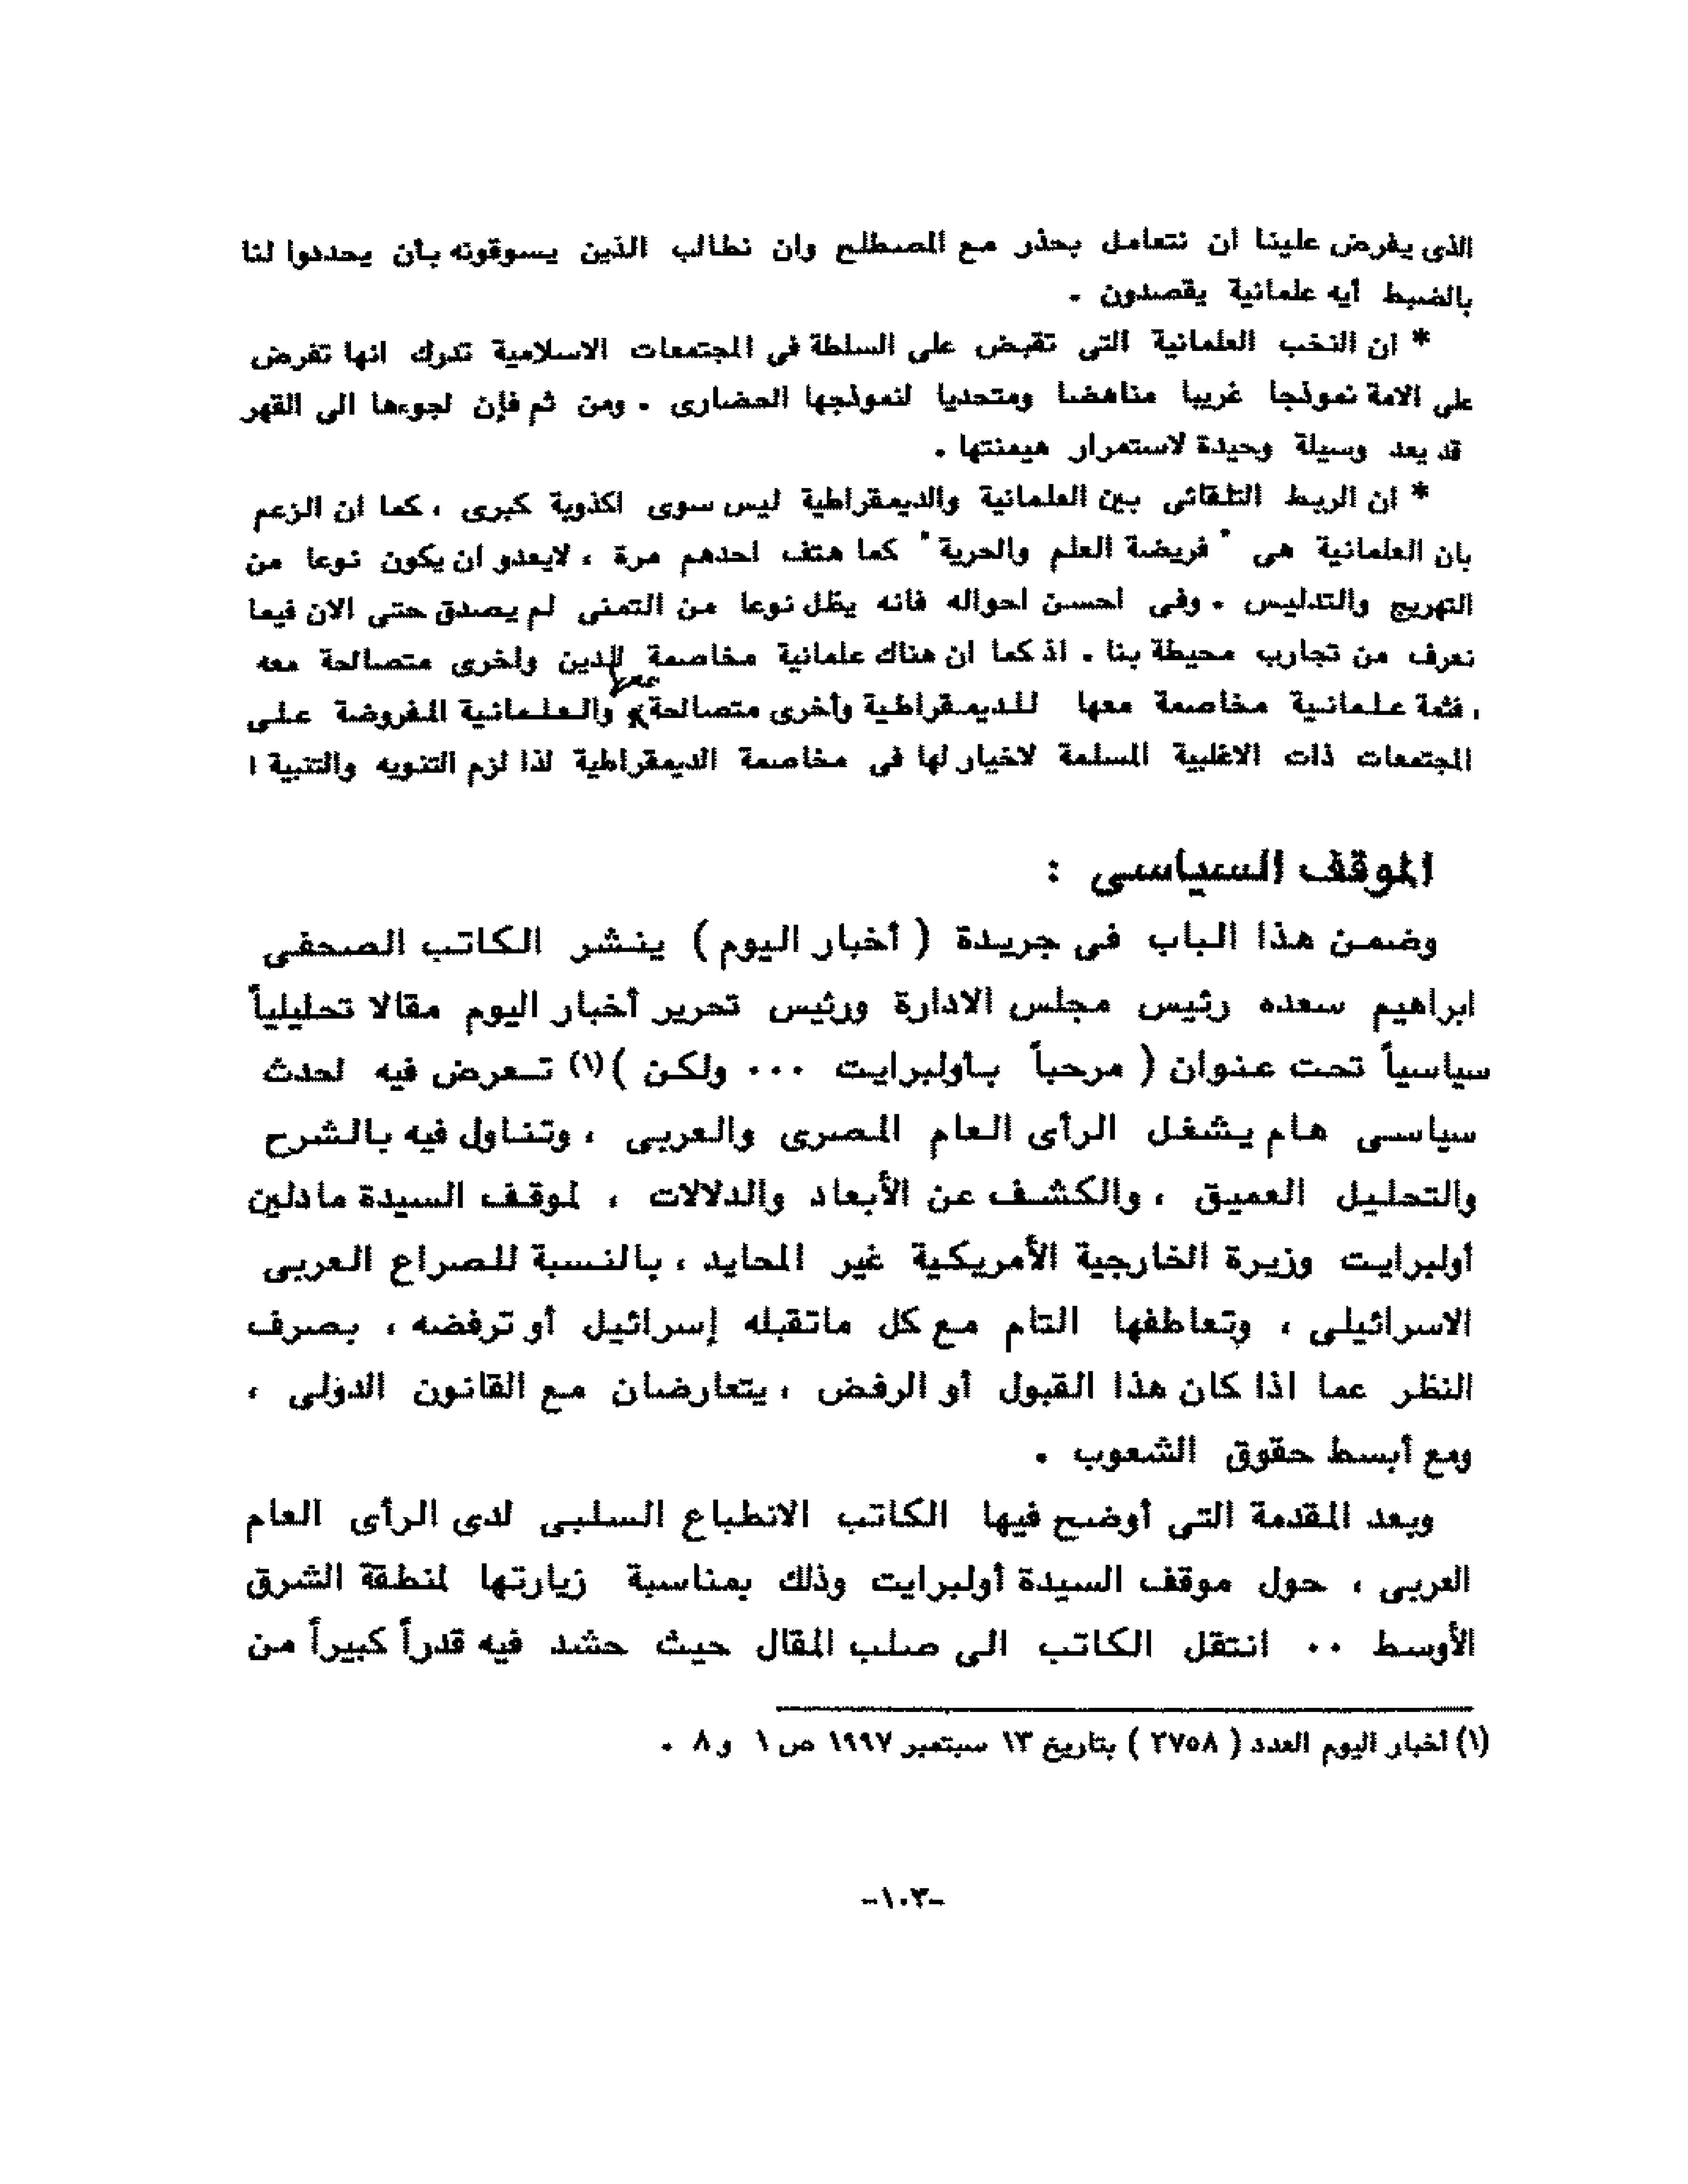 الذى يفرض علينا ان نتعامل بحذر مع المصطلح وان نطالب الذين يسوقونه بأن يحددوا لنا
بالضبط أيه علمانية يقصدون .
* ان النخب العلمانية التى تقبض على السلطة فى المجتمعات الاسلامية تدرك انها تفرض
على الامة نموذجا غريبا مناهضا ومتحديا لنموذجها الحضارى . ومن ثم فإن لجوءها الى القهر
قد يعد وسيلة وحيدة لاستمرار هيمنتها .
* ان الربط التلقائى بين العلمانية والديمقراطية ليس سوى اكذوبة كبرى ، كما ان الزعم
بان العلمانية هى " فريضة العلم والحرية " كما هتف احدهم مرة ، لايعدو ان يكون نوعا من
التهريج والتدليس . وفى احسن احواله فانه يظل نوعا من التمنى لم يصدق حتى الان فيما
نعرف من تجارب محيطة بنا . اذ كما ان هناك علمانية مخاصمة للدين واخرى متصالحة معه
، فثمة علمانية مخاصمة معها للديمقراطية وأخرى متصالحة معها والعلمانية المفروضة على
المجتمعات ذات الاغلبية المسلمة لاخيار لها فى مخاصمة الديمقراطية لذا لزم التنويه والتنبية !
الموقف السياسى :
وضمن هذا الباب فى جريدة ( أخبار اليوم ) ينشر الكاتب الصحفى
ابراهيم سعده رئيس مجلس الادارة ورئيس تحرير أخبار اليوم مقالا تحليلياً
سياسياً تحت عنوان ( مرحباً بأولبرايت ... ولكن )(١) تعرض فيه لحدث
سياسى هام يشغل الرأى العام المصرى والعربى ، وتناول فيه بالشرح
والتحليل العميق ، والكشف عن الأبعاد والدلالات ، لموقف السيدة مادلين
أولبرايت وزيرة الخارجية الأمريكية غير المحايد ، بالنسبة للصراع العربى
الاسرائيلى ، وتعاطفها التام مع كل ماتقبله إسرائيل أو ترفضه ، بصرف
النظر عما اذا كان هذا القبول أو الرفض ، يتعارضان مع القانون الدولى ،
ومع أبسط حقوق الشعوب .
وبعد المقدمة التى أوضح فيها الكاتب الانطباع السلبى لدى الرأى العام
العربى ، حول موقف السيدة أولبرايت وذلك بمناسبة زيارتها لمنطقة الشرق
الأوسط .. انتقل الكاتب الى صلب المقال حيث حشد فيه قدراً كبيراً من
(١) أخبار اليوم العدد ( ٢٧٥٨ ) بتاريخ ١٣ سبتمبر ١٩٩٧ ص ١ و ٨ .
-١٠٣-